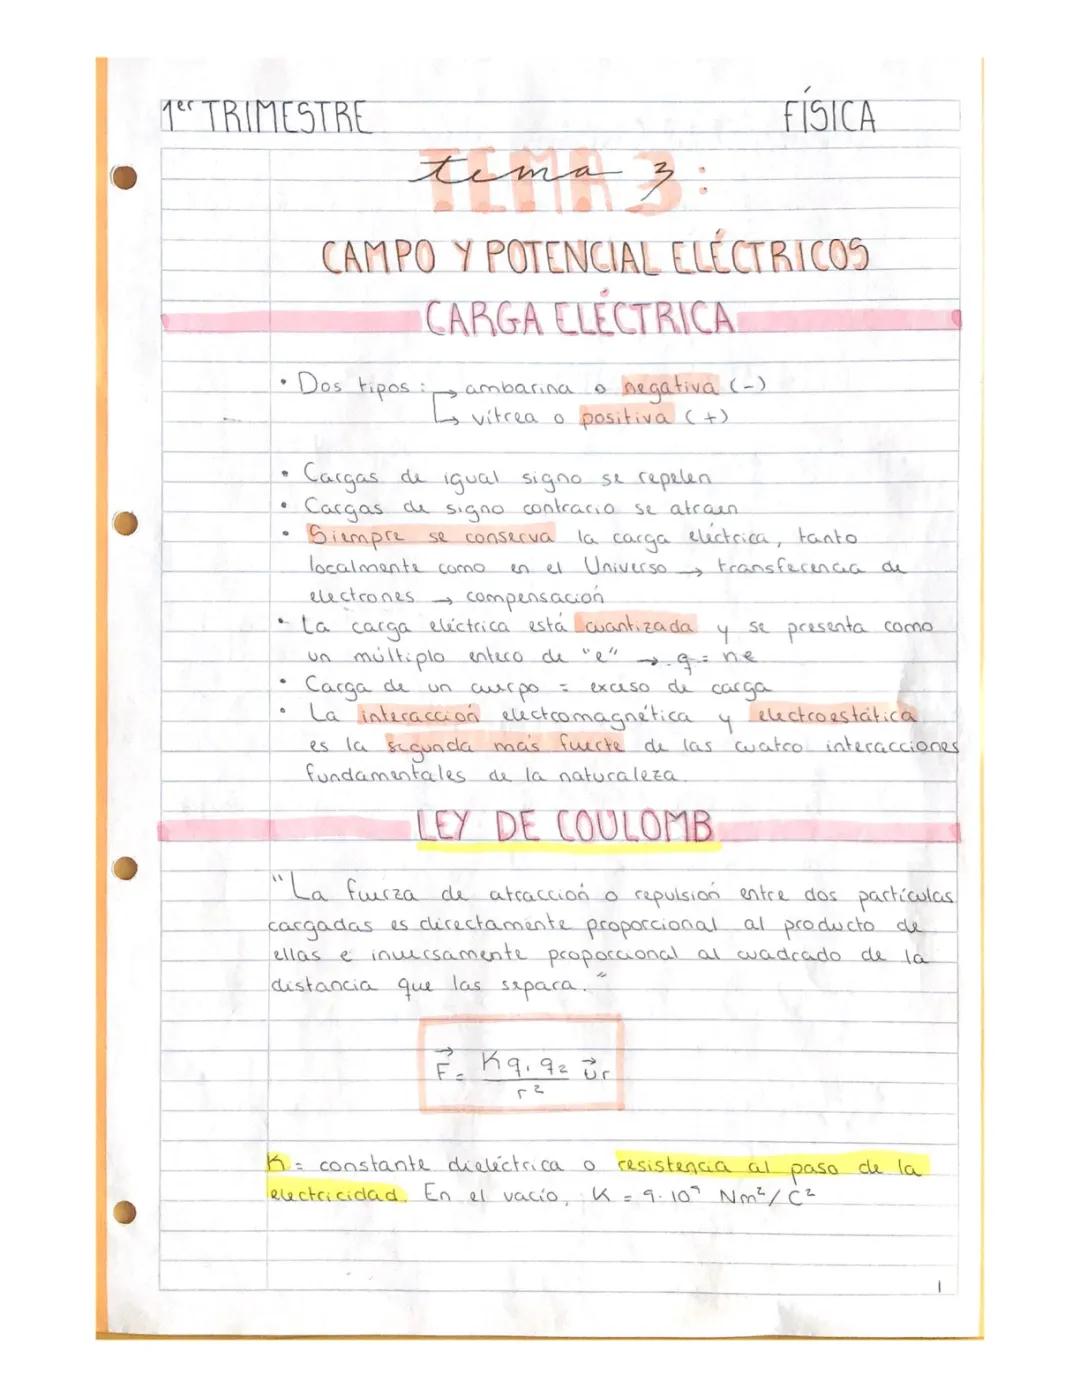 1er TRIMESTRE FÍSICA
TEMA 3:
tema 3
CAMPO Y POTENCIAL ELÉCTRICOS
CARGA ELÉCTRICA
• Dos tipos: → ambarina o negativa (-)
↳ vítrea o positiva (+)
• Cargas de igual signo se repelen
• Cargas de signo contrario se atraen
• Siempre se conserva la carga eléctrica, tanto
localmente como en el Universo → transferencia de
electrones → compensación
• La carga eléctrica está cuantizada y se presenta como
un múltiplo entero de "e" → q = ne
• Carga de un cuerpo = exceso de carga
• La interacción electromagnética y electroestática
es la segunda más fuerte de las cuatro interacciones
fundamentales de la naturaleza.
LEY DE COULOMB
"La fuerza de atracción o repulsión entre dos partículas
cargadas es directamente proporcional al producto de
ellas e inversamente proporcional al cuadrado de la
distancia que las separa."
F⃗ = K q₁ q₂ / r² u⃗r
K = constante dieléctrica o resistencia al paso de la
electricidad. En el vacío, K = 9·10⁹ Nm²/C²
1